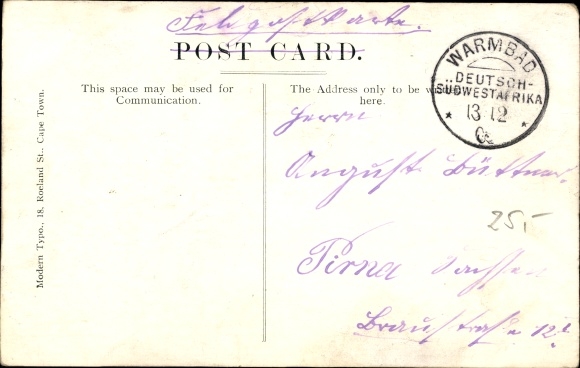 Feldpostkarte.
POST CARD.
This space may be used for
Communication.
The Address only to be
here.
WARMBAD
DEUTSCH-
SÜDWESTAFRIKA
13 12
Herrn
August Büttner.
25,-
Pirna Sachsen
Braustraße 12
Modern Typo., 18, Roeland St., Cape Town.